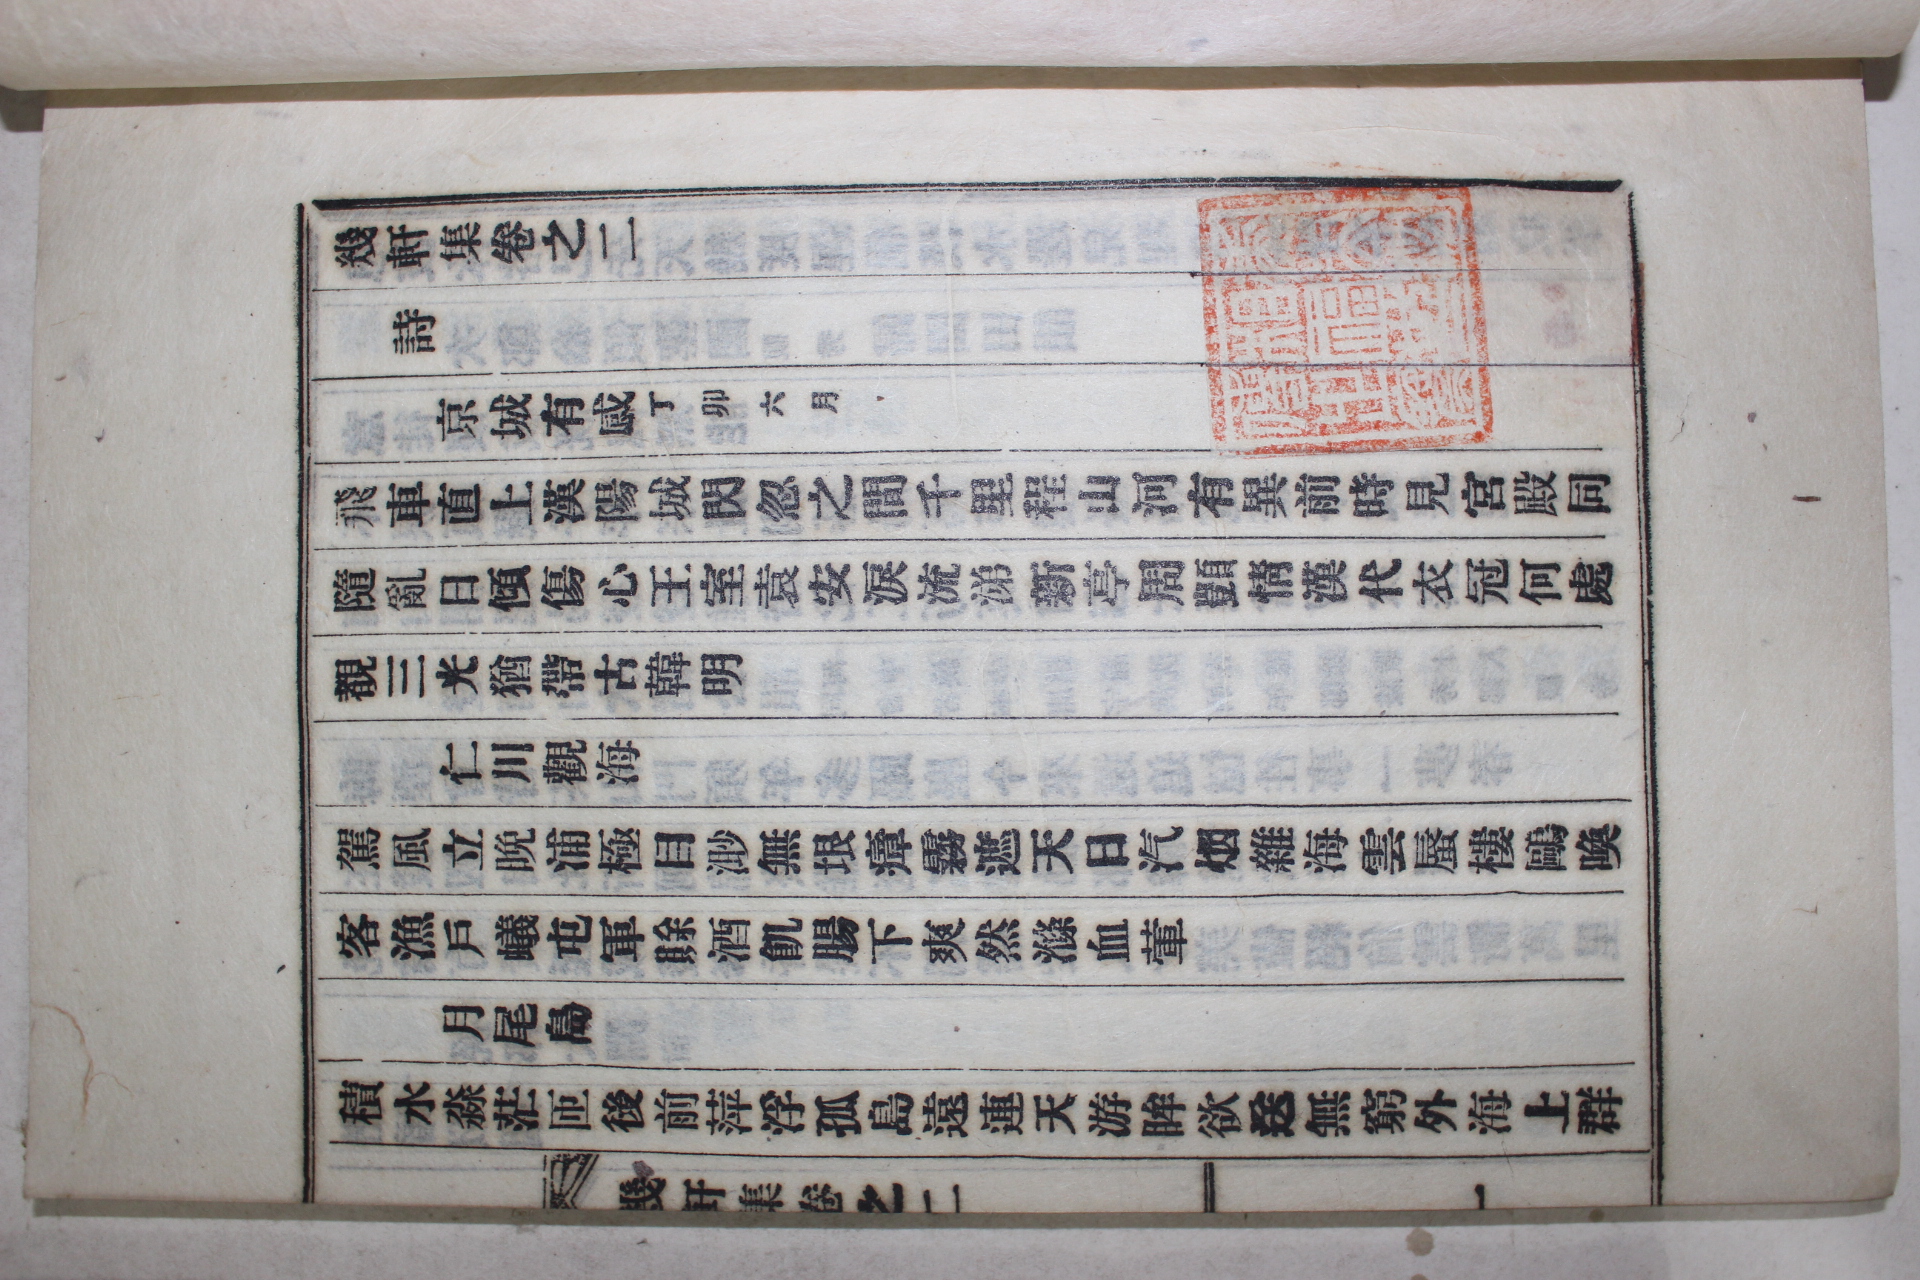 幾軒集卷之二
詩
京城有感丁卯六月
飛車直上漢陽城閃忽之間千里程山河有異前時見宮殿同
隨亂日傾傷心王室袁安淚流涕新亭周顗情漢代衣冠何處
覩三光猶帶古韓明
仁川觀海
駕風立晩浦極目渺無垠瘴霧遮天日汽烟雜海雲蜃樓鷗喚
客漁戶蟻屯軍賖酒飢腸下爽然滌血葷
月尾島
積水淼茫匝後前萍浮孤島遠連天游眸欲送無窮外海上群
幾軒集卷之二
一